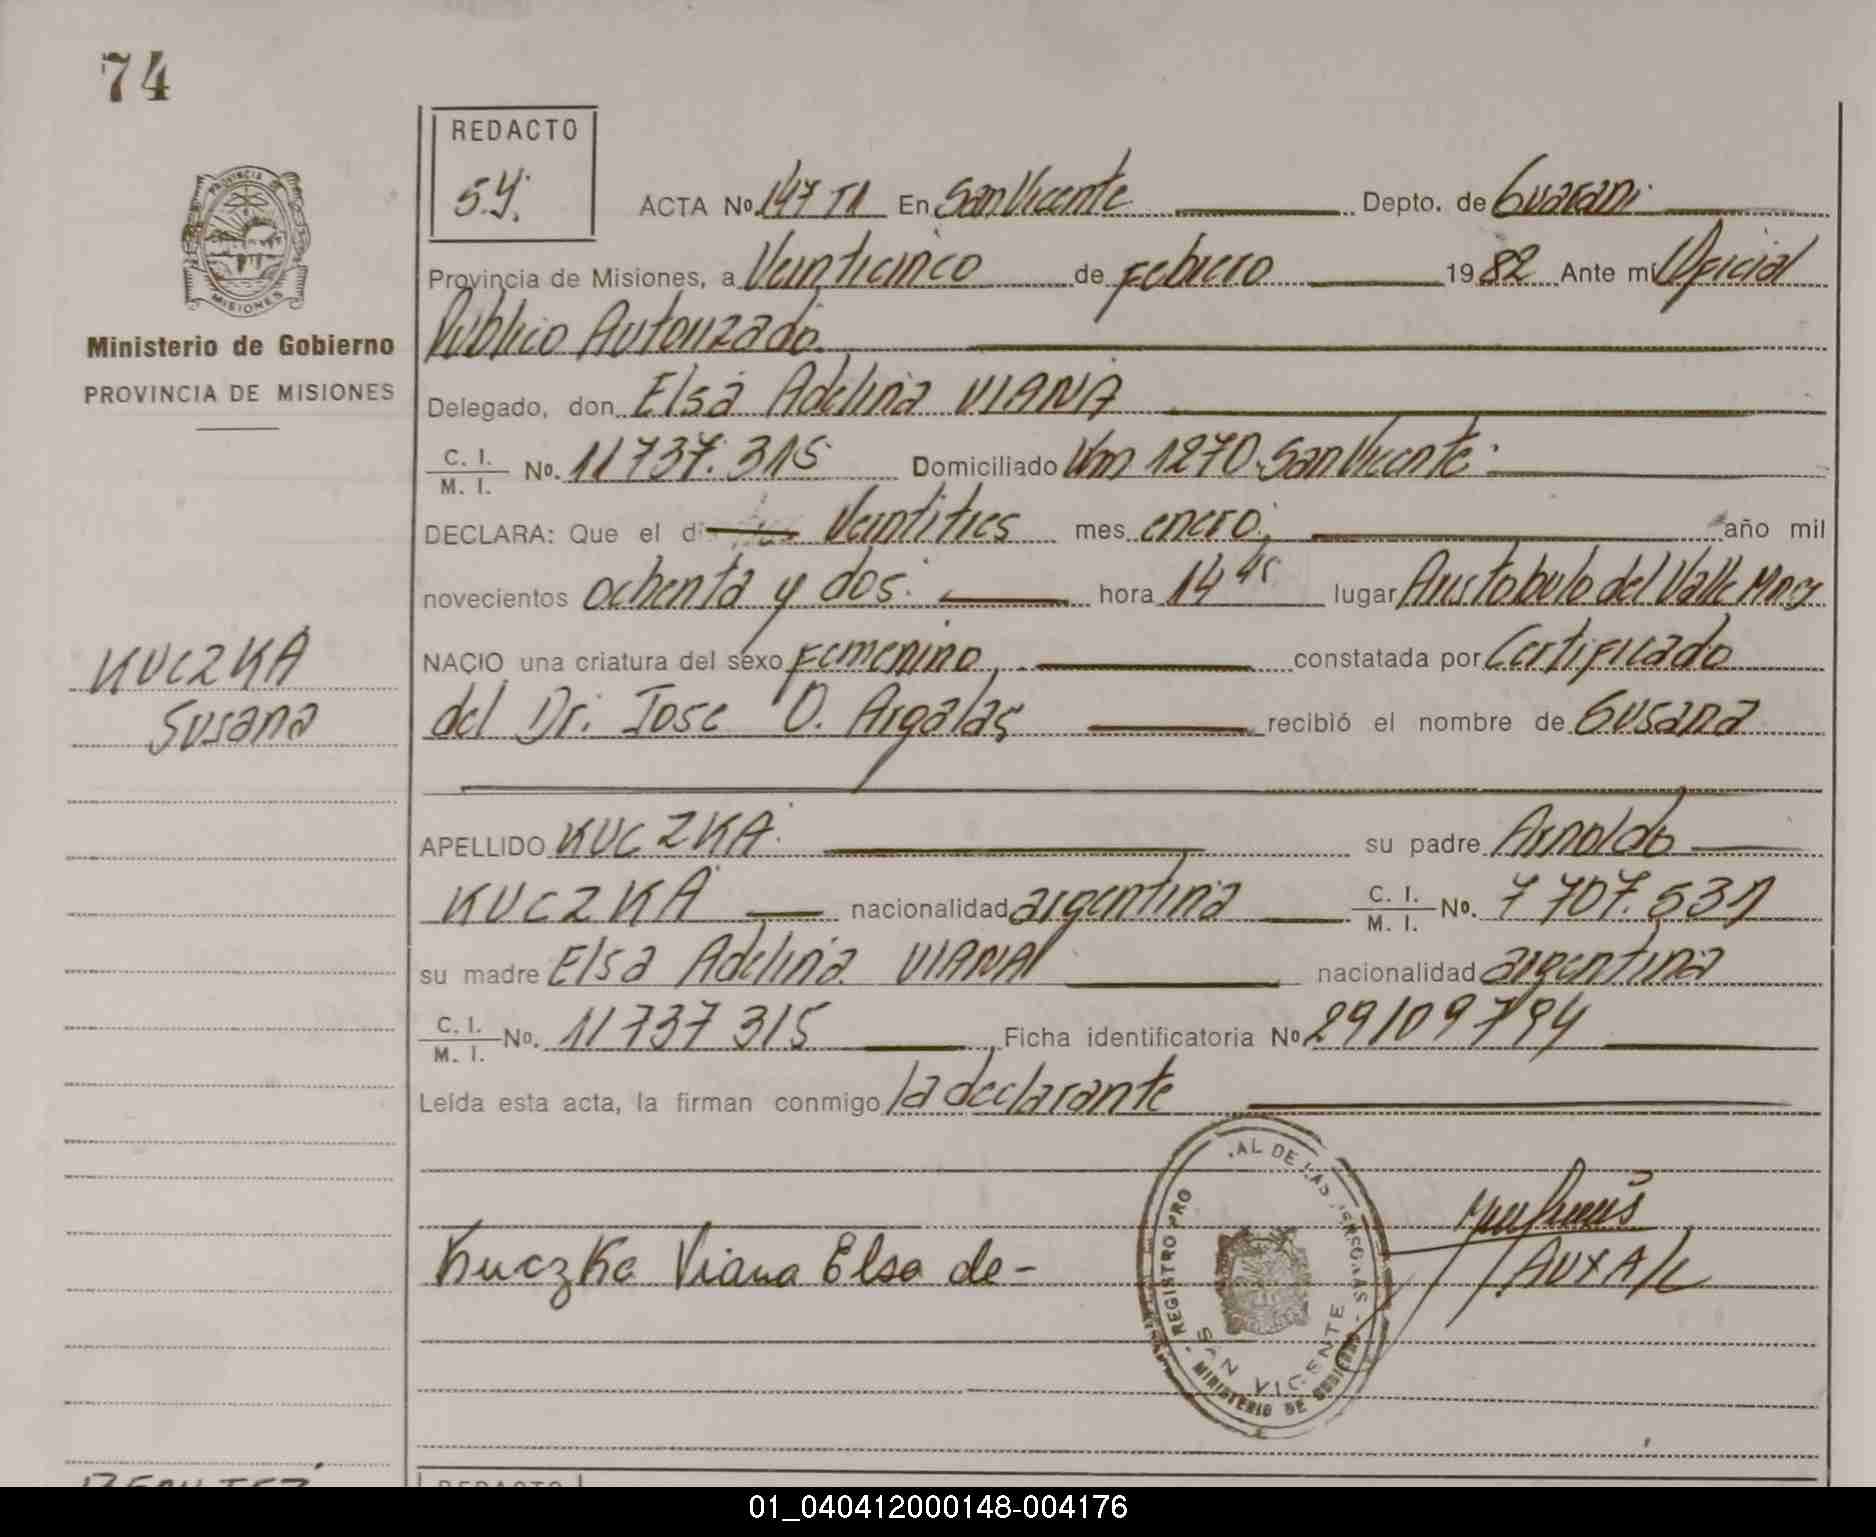 74
REDACTO
S.Y.
ACTA No. 147 T1 En San Vicente Depto. de Guarani
Provincia de Misiones, a Veinticinco de Febrero 1982 Ante mi Oficial
Publico Autorizado.
Delegado, don Elsa Adelina VIANA
C. I. / M. I. No. 11737.315 Domiciliado Km 1270. San Vicente.
DECLARA: Que el dí Veintitres mes enero; año mil
novecientos ochenta y dos. hora 14 45 lugar Aristobulo del Valle Mnes
NACIO una criatura del sexo Femenino, constatada por Certificado
del Dr. Jose O. Argalas recibió el nombre de Susana
APELLIDO KUCZKA. su padre Arnoldo
KUCZKA nacionalidad argentina C. I. / M. I. No. 7 707.531
su madre Elsa Adelina VIANA nacionalidad argentina
C. I. / M. I. No. 11737 315 Ficha identificatoria No 29109794
Leída esta acta, la firman conmigo la declarante
Kuczka Viana Elsa de-
AUX A/C
REGISTRO PRO AL DE LAS PERSONAS
SAN VICENTE
MINISTERIO DE GOBIERNO
PROVINCIA DE
MISIONES
Ministerio de Gobierno
PROVINCIA DE MISIONES
KUCZKA
Susana
REDACTO
01_040412000148-004176